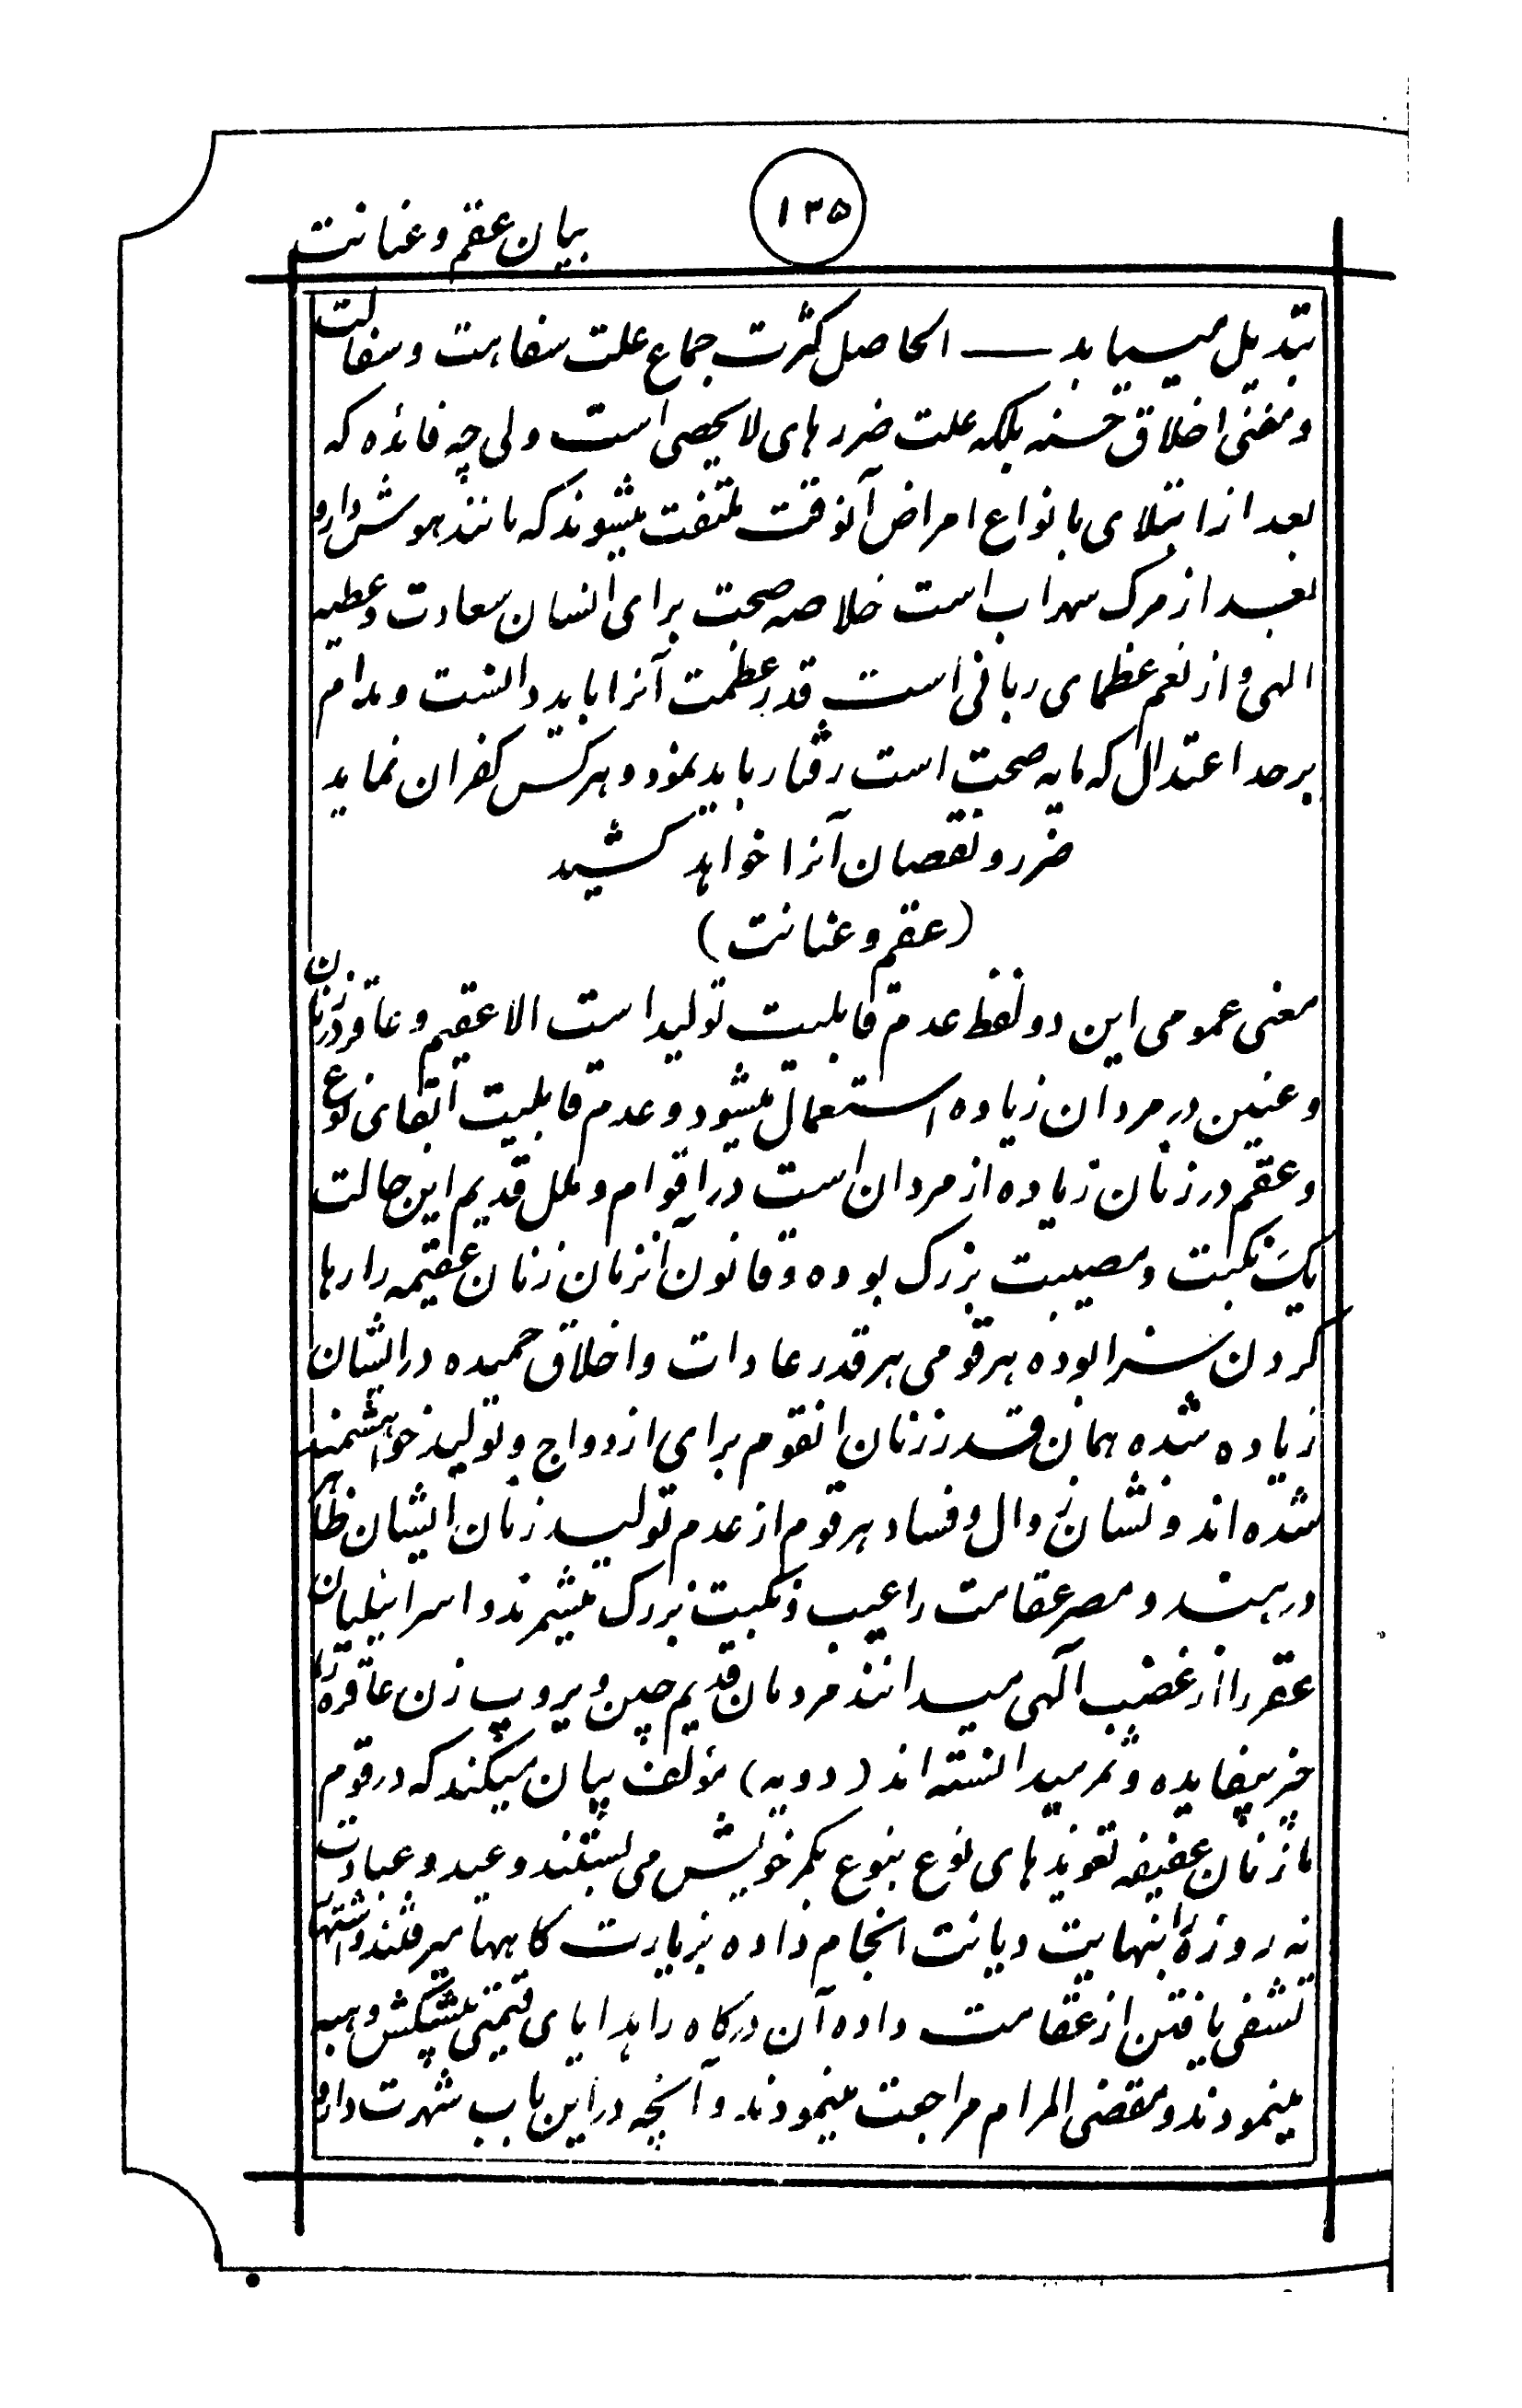 ۱۳۵
بیان عقم و عنانت
تبدیل مییابد — الحاصل کثرت جماع علت سفاهت و سفالت
و مفنی اخلاق حسنه بلکه علت ضررهای لایحصی است ولی چه فائده که
بعد از ابتلای بانواع امراض آنوقت ملتفت میشوند که مانند هوش دارو
بعد از مرک سهراب است خلاصه صحت برای انسان سعادت و عطیه
الهی و از نعم عظمای ربانی است قدر عظمت آنرا باید دانست و مدام
برحد اعتدال که مایه صحت است رفتار باید نمود و هرکس کفران نماید
ضرر و نقصان آنرا خواهد کشید
(عقم و عنانت)
معنی عمومی این دو لفظ عدم قابلیت تولید است الا عقیم و عاقر در زنان
و عنین در مردان زیاده استعمال میشود و عدم قابلیت ابقای نوع
و عقم در زنان زیاده از مردان است در اقوام و ملل قدیم این حالت
یک نکبت و مصیبت بزرک بوده و قانون آنزمان زنان عقیمه را رها
کردن سزا بوده هر قومی هر قدر عادات و اخلاق حمیده در ایشان
زیاده شده همان قدر زنان انقوم برای ازدواج و تولید خواهشمند
شده اند و نشان زوال و فساد هر قوم از عدم تولید زنان ایشان ظاهر
در هند و مصر عقامت را عیب و نکبت بزرک میشمرند و اسرائیلیان
عقر را از غضب آلهی میدانند مردمان قدیم چین و یروپ زن عاقره را
چیز بیفایده و ثمر میدانسته اند (دویه) مؤلف بیان میکند که در قوم
ما زنان عفیفه تعویذهای نوع بنوع بکمر خویش می بستند و عید و عبادت
نه روزۀ بنهایت دیانت انجام داده بزیارت کاهها میرفتند و اشتها
تشفی یافتن از عقامت داده آن درکاه را هدایای قیمتی پیشکش و هبه
مینمودند و مقضی المرام مراجعت مینمودند و آنچه در این باب شهرت دارد